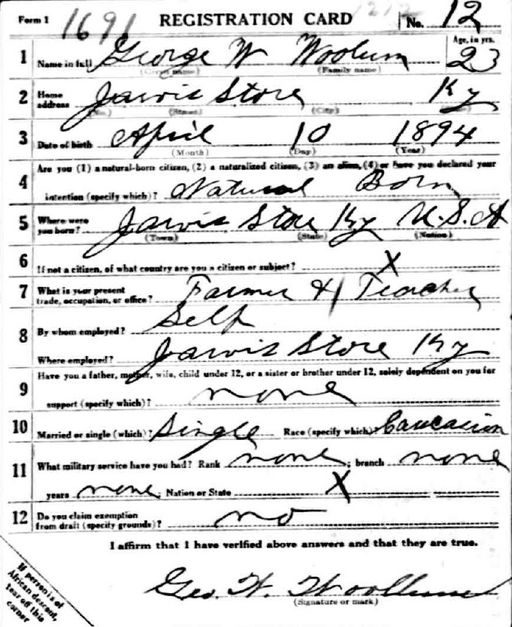 Form 1 1691 REGISTRATION CARD 1212 No. 12
1 Name in full George W Woolum Age, in yrs. 23
(Given name) (Family name)
2 Home address Jarvis Store Ky
(No.) (Street) (City)
3 Date of birth April 10 1894
(Month) (Day) (Year)
4 Are you (1) a natural-born citizen, (2) a naturalized citizen, (3) an alien, (4) or have you declared your
intention (specify which)? Natural Born
5 Where were you born? Jarvis Store Ky U.S.A
(Town) (State) (Nation)
6 If not a citizen, of what country are you a citizen or subject? X
7 What is your present trade, occupation, or office? Farmer & Teacher
8 By whom employed? Self
Where employed? Jarvis Store Ky
9 Have you a father, mother, wife, child under 12, or a sister or brother under 12, solely dependent on you for
support (specify which)? none
10 Married or single (which)? Single Race (specify which)? Caucasian
11 What military service have you had? Rank none ; branch none
years none ; Nation or State X
12 Do you claim exemption from draft (specify grounds)? no
I affirm that I have verified above answers and that they are true.
Geo. W. Woollum
(Signature or mark)
If person is of
African descent,
tear off this
corner